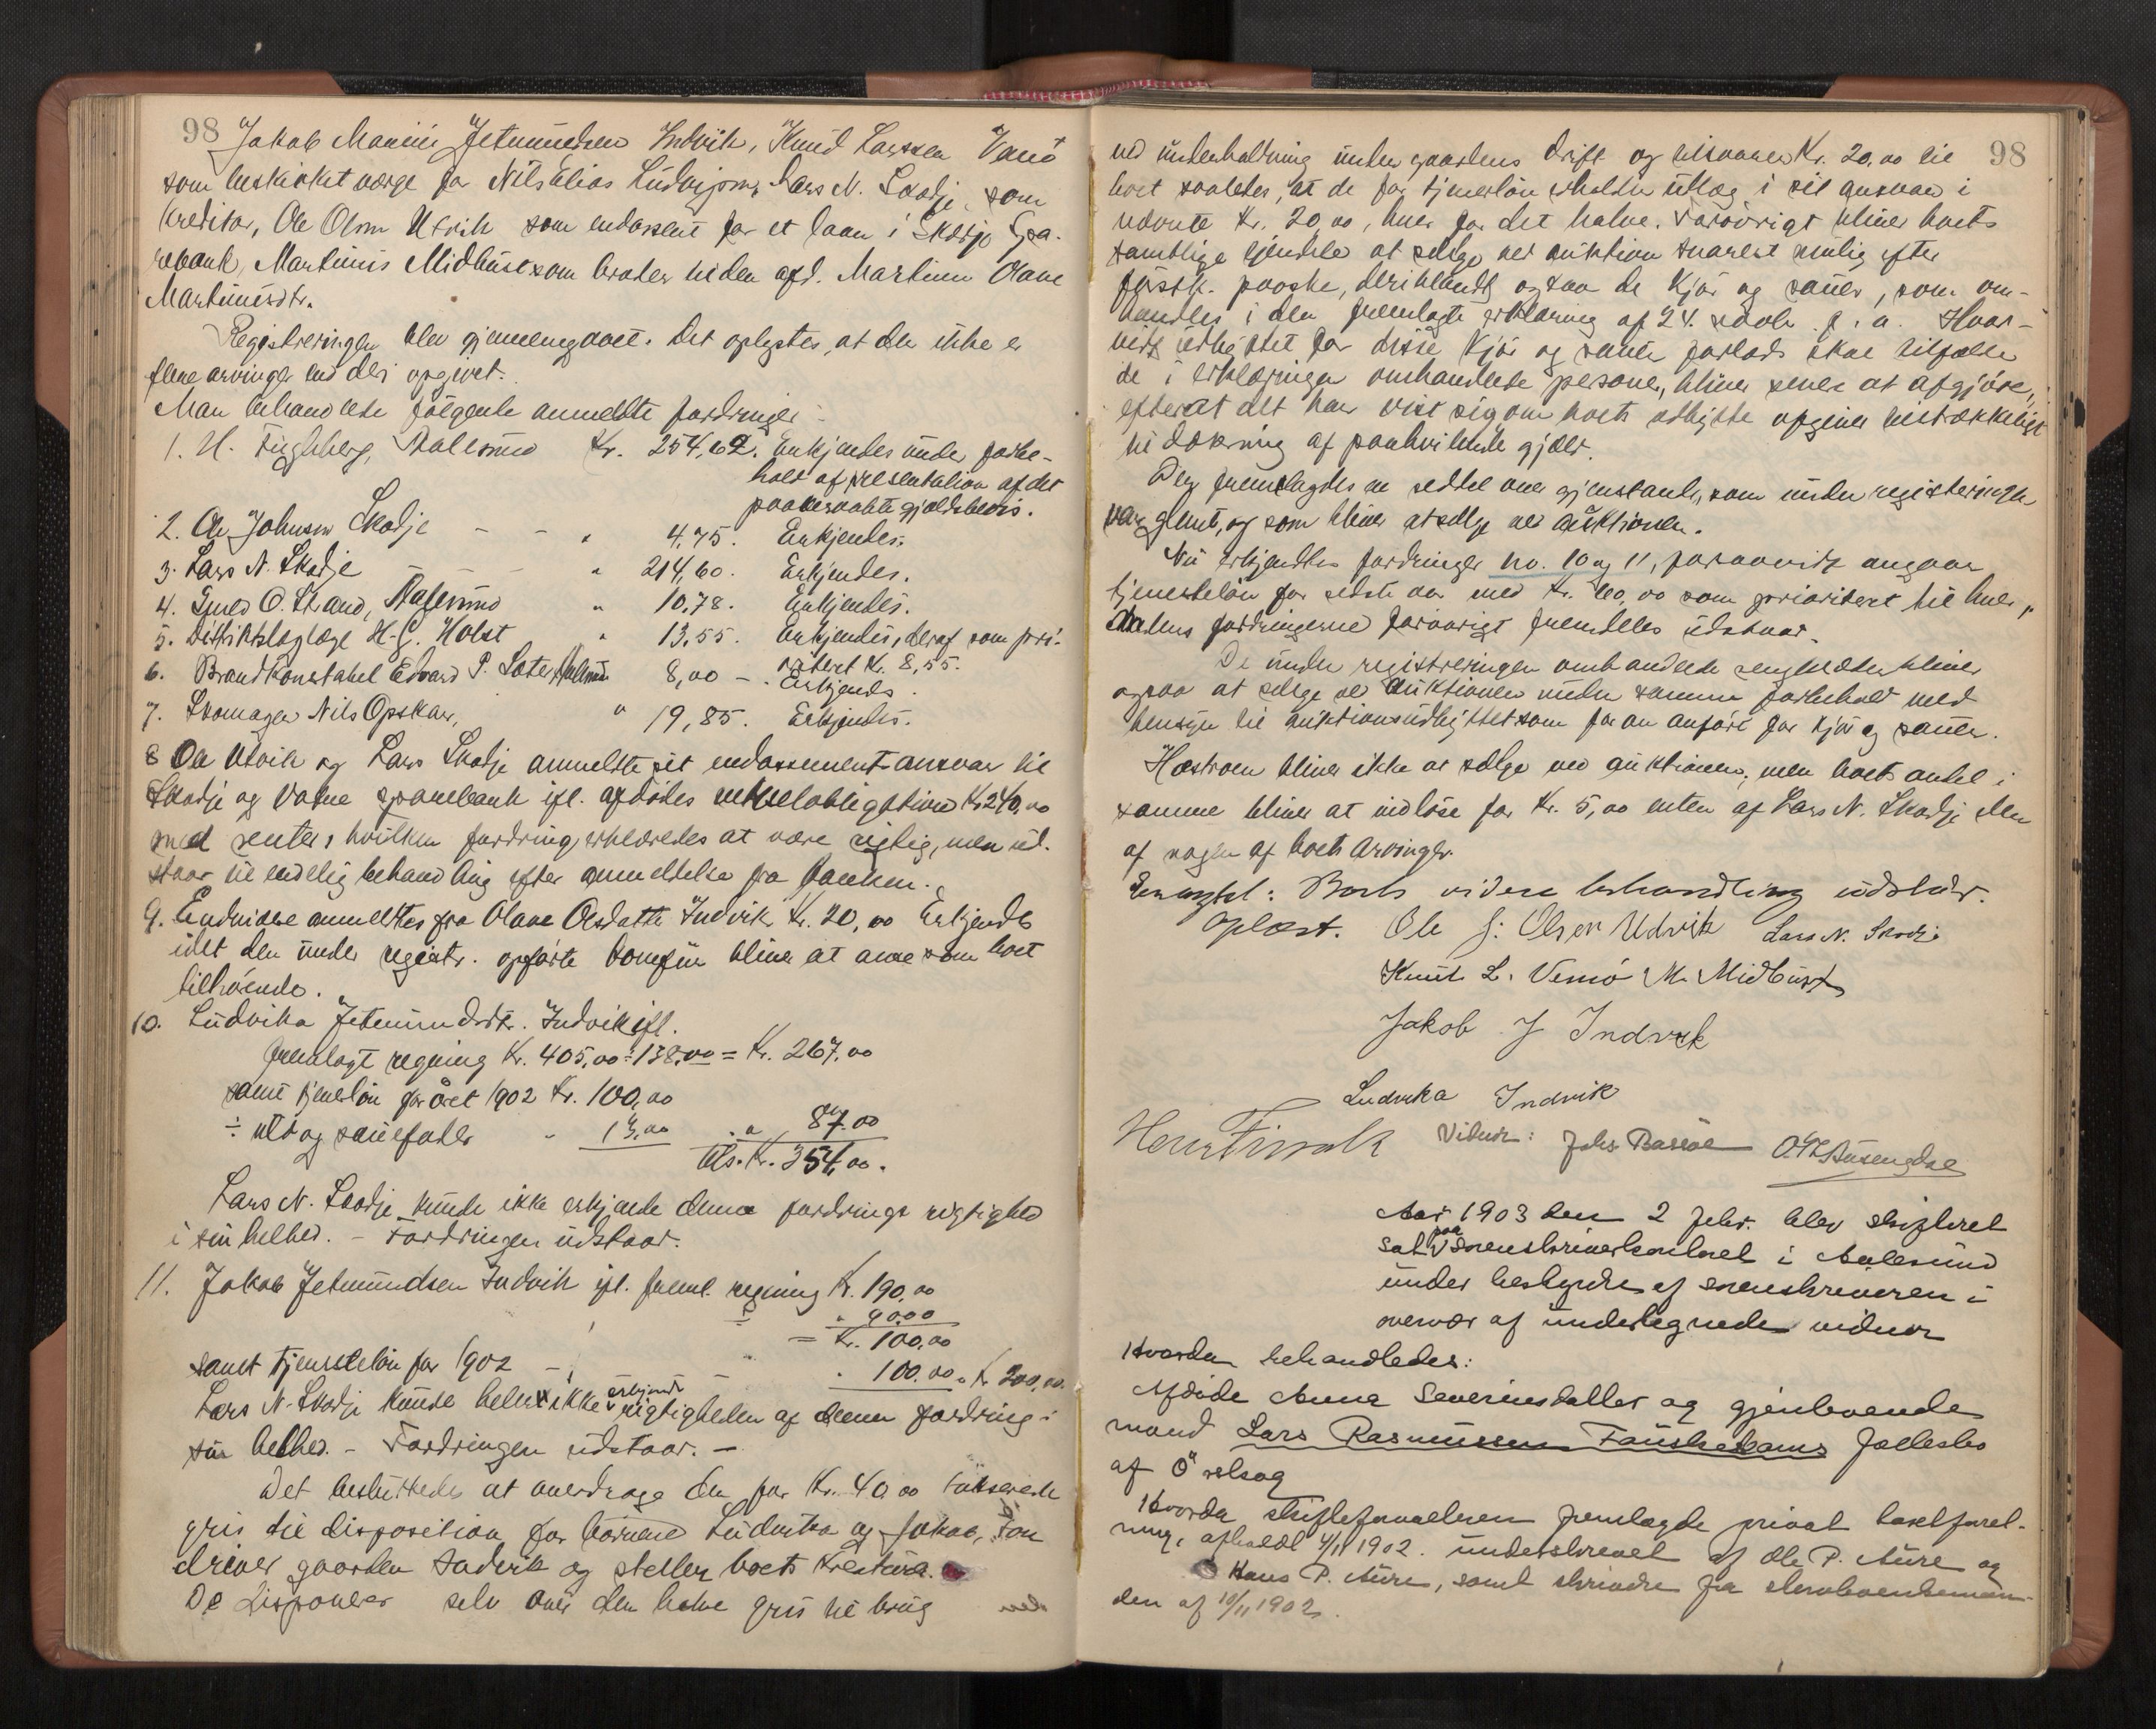 98
Jakob Marius Jetmundsen Indvik, Knud Larssen Vemö
som beskikket værge for Nils Elias Ludvigsen, Lars N. Skodje som
kreditor, Ole Olsen Utvik som endossent for et laan i Skodje Spa-
rebank, Martinus Midbust som broder til den afd. Martine Olave
Martinusdtr.
Registreringen blev gjennemgaaet. Det oplystes, at der ikke er
flere arvinger end der opgivet.
Man behandlede følgende anmeldte fordringer
1. H. Fughberg, Aalesund Kr. 254,62. Erkjendes under forbe-
hold af presentation af det
paaberaabte gjældsbevis.
2. Ole Johnsen Skodje - - " 4,75. Erkjendes.
3. Lars N. Skodje - - - " 214,60. Erkjendes.
4. Smed O. Strand, Aalesund " 10,78. Erkjendes.
5. Distriktslæge H. G. Holst " 13,55. Erkjendes, deraf som pri-
oritert Kr. 8,55.
6. Brandkonstabel Edvard P. Sæter, Aalesund 8,00 - . Erkjendes.
7. Skomager Nils Opskar, " 19,85. Erkjendes.
8 Ole Utvik og Lars Skodje anmeldte sit endossementsansvar til
Skodje og Vatne sparebank ifl. afdødes vekselobligation Kr. 240,00
med renter, hvilken fordring erklæredes at være rigtig, men ud-
staar til endelig behandling efter anmeldelse fra banken.
9. Endvidere anmeldtes fra Olave Olsdatter Indvik Kr. 20,00 Erkjendes
idet den under registr. opførte komfur bliver at anse som boet
tilhørende.
10. Ludvika Jetmundsdtr. Indvik ifl.
fremlagt regning Kr. 405,00 ÷ 138,00 = Kr. 267,00
samt tjenerløn for året 1902 Kr. 100,00
÷ uld og sauefoder " 13,00 . " 87.00
Tils. Kr. 354,00.
Lars N. Skodje kunde ikke erkjende denne fordrings rigtighed
i sin helhed. - Fordringen udstaar.
11. Jakob Jetmundsen Indvik ifl. freml. regning Kr. 190,00
÷ " 90.00
= Kr. 100,00
samt tjenesteløn for 1902 - " 100.00 = Kr 200,00.
Lars N. Skodje kunde heller ikke erkjende rigtigheden af denne fordring i
sin helhed. - Fordringen udstaar. -
Det besluttedes at overdrage den for Kr. 40,00 takserede
gris til disposition for börnene Ludvika og Jakob, som
driver gaarden Indvik og steller boets kreatura.
De disponerer selv over den halve gris til brug
ved
98
ved underholdning under gaardens drift og tilsvarer Kr. 20,00 til
boet saaledes, at de for tjenerløn erholder utlæg i sit ansvar i
nævnte Kr. 20,00, hver for det halve. Forøvrigt bliver boets
samtlige eiendele at sælge ved auktion snarest mulig efter
førstk. paaske, deriblandt ogsaa de kjør og sauer, som om-
handles i den fremlagte erklæring af 24. novbr. f. a. Hvor-
vidt udbyttet for disse kjør og sauer forlods skal tilfalde
de i erklæringen omhandlede personer, bliver senere at afgjøre,
efterat det har vist sig om boets udbytte opgives tilstrækkeligt
til dækning af paahvilende gjæld.
Der fremlagdes en seddel over gjenstande, som under registeringen
var glemt, og som bliver at sælge ved auktionen.
Nu erkjendtes fordringer no. 10 og 11, forsaavidt angaar
tjenesteløn for sidste aar med Kr. 100,00 som prioritert til hver,
medens fordringerne forøvrigt fremdeles udstaar.
De under registreringen omhandlede sengklæder bliver
ogsaa at sælge ved auktionen under samme forbehold med
hensyn til auktionsudbyttet som foran anført for kjør og sauer.
Hestroen bliver ikke at sælge ved auktionen, men boets andel i
samme bliver at indløse for Kr. 5,00 enten af Lars N. Skodje eller
af nogen af boets arvinger.
Eragtet: Boets videre behandling udstaar.
Oplæst. Ole J: Olsen Udvik Lars N. Skodje
Knut L. Vemö M. Midbust
Jakob J Indvik
Ludvika Indvik
Vidner: Johs Bassøe
Aar 1903 den 2 febr. blev skifteret
sat paa sorenskriverkontoret i Aalesund
under bestyrelse af sorenskriveren i
overvær af undertegnede vidner
Hvorda behandledes:
Afdøde Anna Severinsdatter og gjenlevende
mand Lars Rasmussen Fauskehams fællesbo
af Ørskog
Hvorda skifteforvalteren fremlagde privat taxtforret-
ning, afholdt 4/11 1902. underskrevet af Ole P. Aure og
Hans P. Aure, samt skrivelse fra skiftevidnemæn-
den af 10/11 1902.